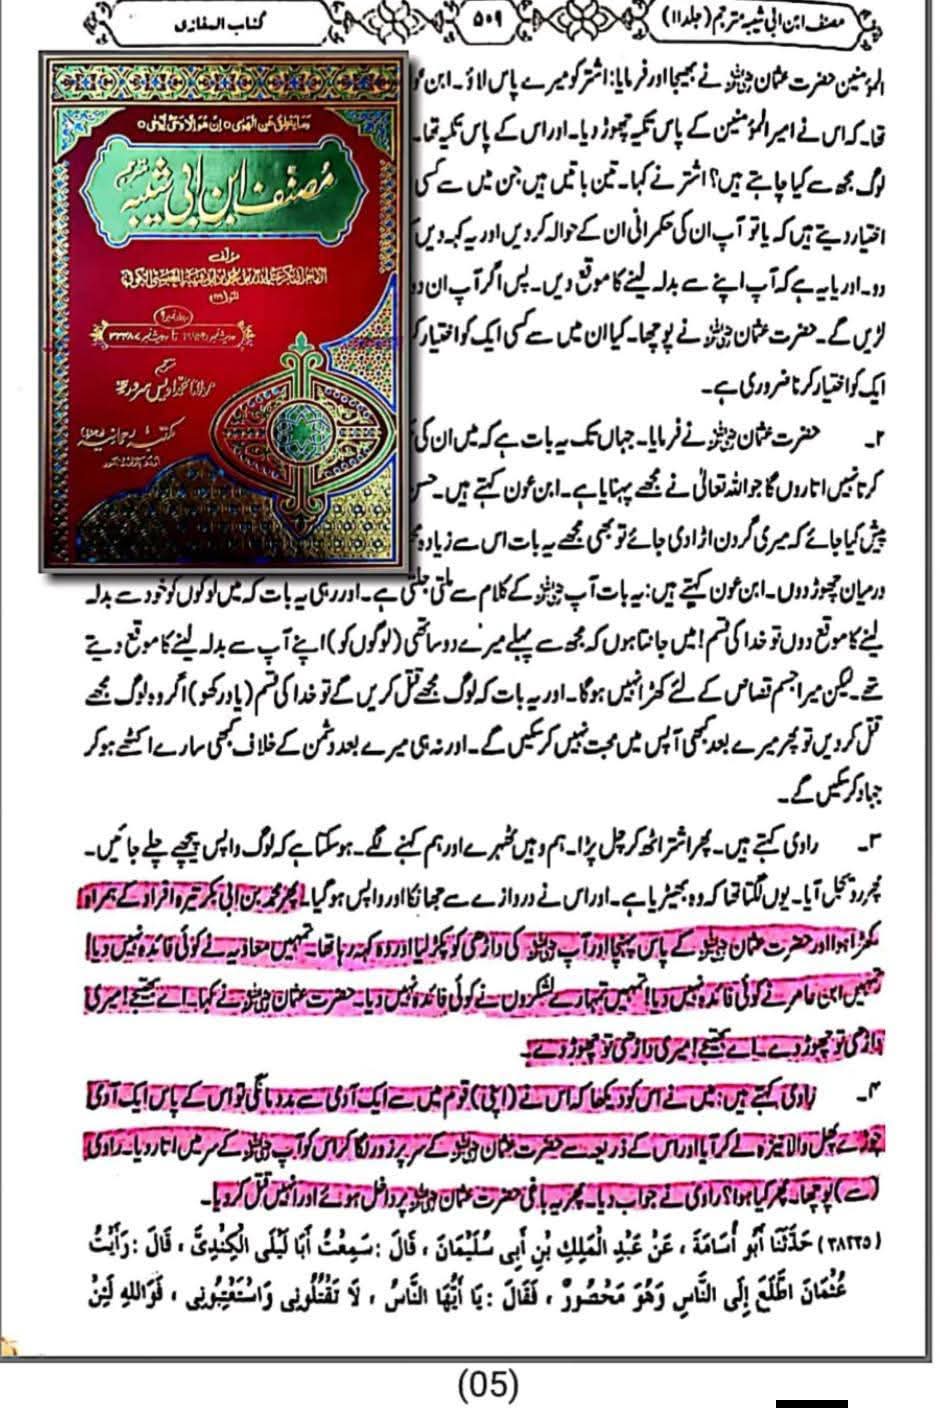 مصنف ابن ابی شیبہ مترجم (جلد ۱۱)
۵۰۹
کتاب المغازی
وَمَا يَنْطِقُ عَنِ الْهَوٰى ○ اِنْ هُوَ اِلَّا وَحْىٌ يُّوحٰى ○
مُصنّف ابن ابی شیبہ
مترجم
مؤلف
مترجم
مولانا محمد اویس سرور
مکتبہ رحمانیہ
المؤمنین حضرت عثمان رضی اللہ عنہ نے بھیجا اور فرمایا: اشتر کو میرے پاس لاؤ۔ ابن عو
تھا۔ کہ اس نے امیر المؤمنین کے پاس تکیہ چھوڑ دیا۔ اور اس کے پاس تکیہ تھا۔
لوگ مجھ سے کیا چاہتے ہیں؟ اشتر نے کہا۔ تین باتیں ہیں جن میں سے کسی
اختیار دیتے ہیں کہ یا تو آپ ان کی حکمرانی ان کے حوالہ کر دیں اور یہ کہہ دیں
دو۔ اور یا یہ ہے کہ آپ اپنے سے بدلہ لینے کا موقع دیں۔ پس اگر آپ ان دو
لڑیں گے۔ حضرت عثمان رضی اللہ عنہ نے پوچھا۔ کیا ان میں سے کسی ایک کو اختیار کر
ایک کو اختیار کرنا ضروری ہے۔
۲۔ حضرت عثمان رضی اللہ عنہ نے فرمایا۔ جہاں تک یہ بات ہے کہ میں ان کی
کرتا نہیں اتاروں گا جو اللہ تعالیٰ نے مجھے پہنایا ہے۔ ابن عون کہتے ہیں۔ حسن
پیش کیا جائے کہ میری گردن اڑا دی جائے تو بھی مجھے یہ بات اس سے زیادہ
درمیان چھوڑ دوں۔ ابن عون کہتے ہیں: یہ بات آپ رضی اللہ عنہ کے کلام سے ملتی جلتی ہے۔ اور رہی یہ بات کہ میں لوگوں کو خود سے بدلہ
لینے کا موقع دوں تو خدا کی قسم! میں جانتا ہوں کہ مجھ سے پہلے میرے دو ساتھی (لوگوں کو) اپنے آپ سے بدلہ لینے کا موقع دیتے
تھے۔ لیکن میرا جسم قصاص کے لئے کھڑا نہیں ہوگا۔ اور یہ بات کہ لوگ مجھے قتل کریں گے تو خدا کی قسم (یاد رکھو) اگر وہ لوگ مجھے
قتل کر دیں تو پھر میرے بعد کبھی آپس میں محبت نہیں کر سکیں گے۔ اور نہ ہی میرے بعد دشمن کے خلاف کبھی سارے اکٹھے ہو کر
جہاد کر سکیں گے۔
۳۔ راوی کہتے ہیں۔ پھر اشتر اٹھ کر چل پڑا۔ ہم وہیں ٹھہرے اور ہم کہنے لگے۔ ہو سکتا ہے کہ لوگ واپس پیچھے چلے جائیں۔
پھر رویجل آیا۔ یوں لگتا تھا کہ وہ بھیڑیا ہے۔ اور اس نے دروازے سے جھانکا اور واپس ہو گیا۔ پھر محمد بن ابی بکر تیرہ افراد کے ہمراہ
کھڑا ہوا اور حضرت عثمان رضی اللہ عنہ کے پاس پہنچا اور آپ رضی اللہ عنہ کی داڑھی کو پکڑ لیا اور وہ کہہ رہا تھا۔ تمہیں معاویہ نے کوئی فائدہ نہیں دیا!
تمہیں ابن عامر نے کوئی فائدہ نہیں دیا! تمہیں تمہارے لشکروں نے کوئی فائدہ نہیں دیا۔ حضرت عثمان رضی اللہ عنہ نے کہا۔ اے بھتیجے! میری
داڑھی تو چھوڑ دے۔ اے بھتیجے! میری داڑھی تو چھوڑ دے۔
۴۔ راوی کہتے ہیں: میں نے اس کو دیکھا کہ اس نے (اپنی) قوم میں سے ایک آدمی سے مدد مانگی تو اس کے پاس ایک آدمی
چوڑے پھل والا نیزہ لے کر آیا اور اس کے ذریعہ سے حضرت عثمان رضی اللہ عنہ کے سر پر زور لگا کر اس کو آپ رضی اللہ عنہ کے سر میں اتار دیا۔ راوی
(سے) پوچھا۔ پھر کیا ہوا؟ راوی نے جواب دیا۔ پھر یہ باغی حضرت عثمان رضی اللہ عنہ پر داخل ہوئے اور انہیں قتل کر دیا۔
(۳۸۲۳۵) حَدَّثَنَا أَبُو أُسَامَةَ ، عَنْ عَبْدِ الْمَلِكِ بْنِ أَبِي سُلَيْمَانَ ، قَالَ : سَمِعْتُ أَبَا لَيْلَى الْكِنْدِيَّ ، قَالَ : رَأَيْتُ
عُثْمَانَ اطَّلَعَ إِلَى النَّاسِ وَهُوَ مَحْصُورٌ ، فَقَالَ : يَا أَيُّهَا النَّاسُ ، لَا تَقْتُلُونِي وَاسْتَعْتِبُونِي ، فَوَاللهِ لَئِنْ
(05)